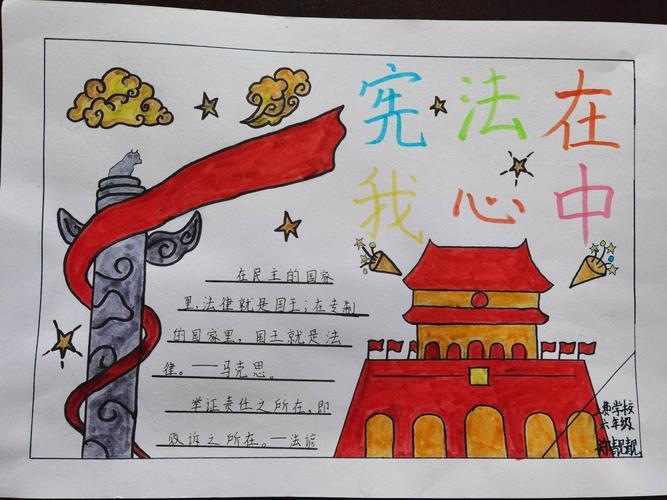 宪法在
我心中
在民主的国家
里,法律就是国王;在专制
的国家里,国王就是法
律。——马克思。
举证责任之所在,即
败诉之所在。—法谚
学校
六年级